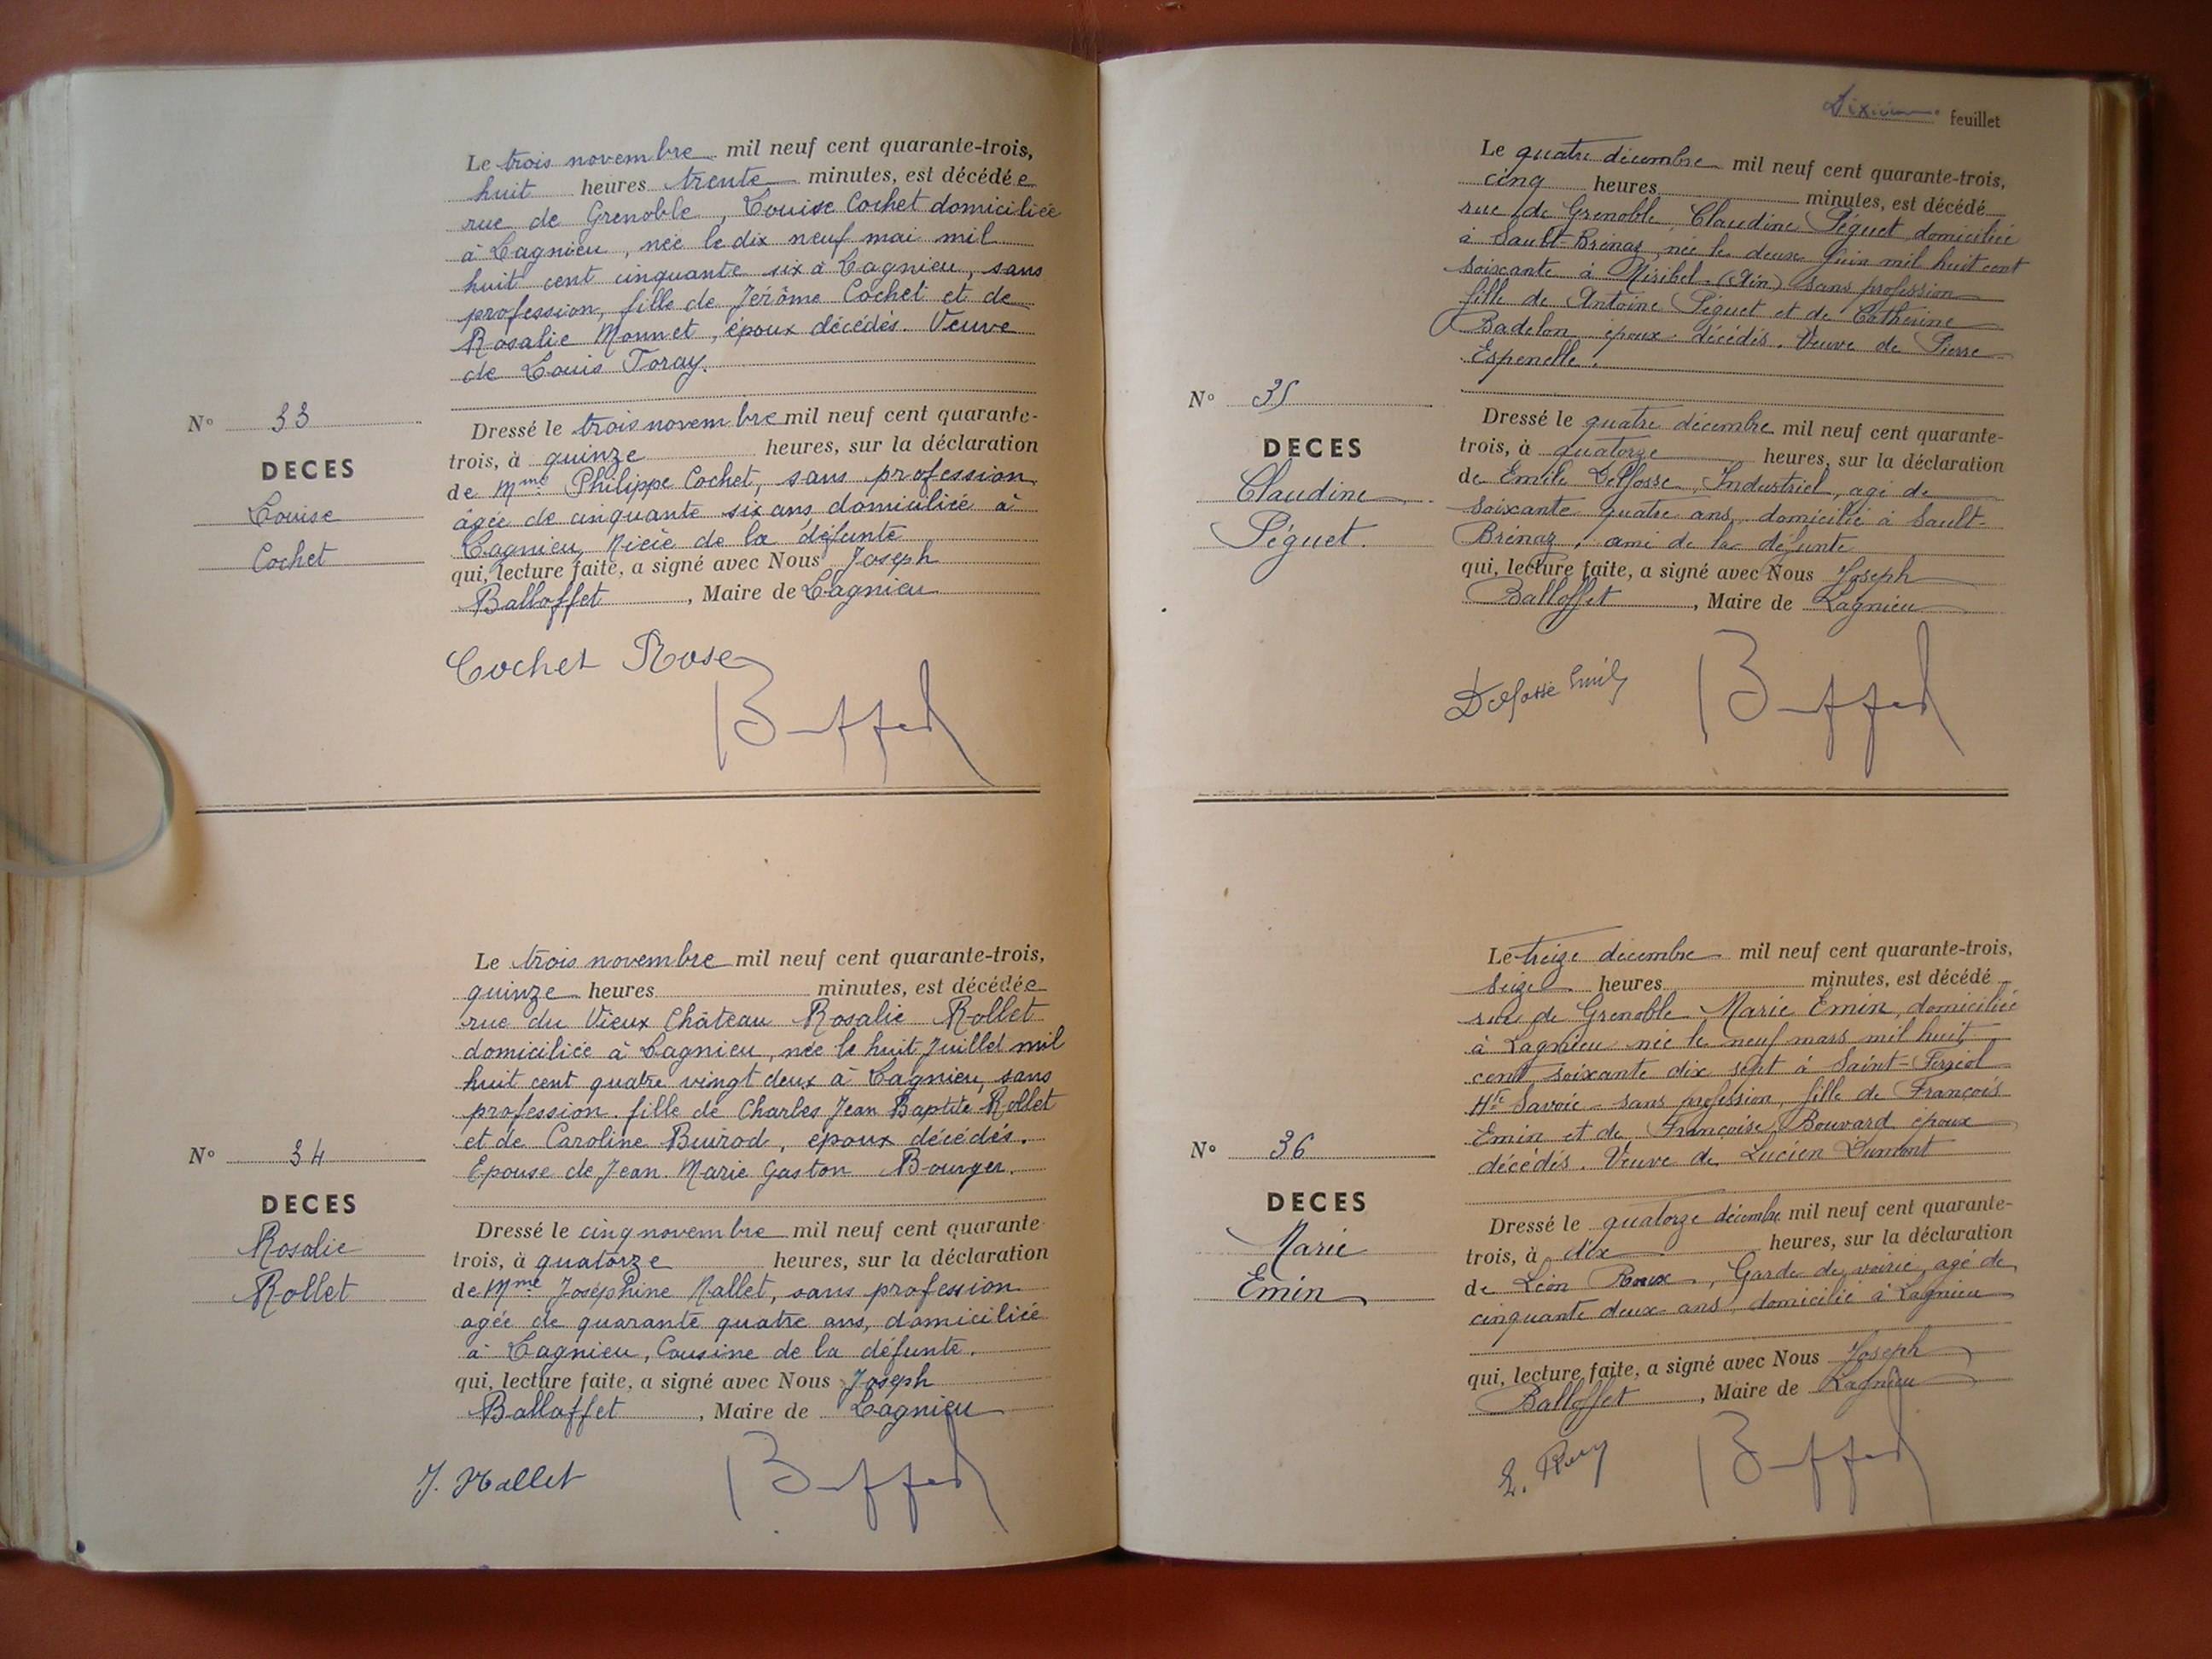 Le trois novembre mil neuf cent quarante-trois,
huit heures trente minutes, est décédée
rue de Grenoble, Louise Cochet domiciliée
à Lagnieu, née le dix neuf mai mil
huit cent cinquante six à Lagnieu, sans
profession, fille de Jérôme Cochet et de
Rosalie Monnet, époux décédés. Veuve
de Louis Toray.
N° 33
DECES
Louise
Cochet
Dressé le trois novembre mil neuf cent quarante-
trois, à quinze heures, sur la déclaration
de Mme Philippe Cochet, sans profession
âgée de cinquante six ans domiciliée à
Lagnieu, Nièce de la défunte
qui, lecture faite, a signé avec Nous Joseph
Balloffet, Maire de Lagnieu
Cochet Rose
Le trois novembre mil neuf cent quarante-trois,
quinze heures minutes, est décédée
rue du Vieux Château Rosalie Rollet
domiciliée à Lagnieu, née le huit Juillet mil
huit cent quatre vingt deux à Lagnieu, sans
profession. fille de Charles Jean Baptite Rollet
et de Caroline Buirod, époux décédés.
Epouse de Jean Marie Gaston
N° 34
DECES
Rosalie
Rollet
Dressé le cinq novembre mil neuf cent quarante
trois, à quatorze heures, sur la déclaration
de Mme Joséphine Mallet, sans profession
agée de quarante quatre ans, domiciliée
à Lagnieu, Cousine de la défunte.
qui, lecture faite, a signé avec Nous Joseph
Balloffet, Maire de Lagnieu
J. Mallet
Dixième feuillet
Le quatre décembre mil neuf cent quarante-trois,
cinq heures minutes, est décédé
rue de Grenoble, Claudine Péguet domiciliée
à Sault-Brénaz, née le deux Juin mil huit cent
soixante à Miribel (Ain) sans profession
fille de Antoine Péguet et de Catherine
Badelon époux décédés. Veuve de Pierre
Espenelle.
N° 35
DECES
Claudine
Péguet.
Dressé le quatre décembre mil neuf cent quarante-
trois, à quatorze heures, sur la déclaration
de Emile Delfosse, Industriel, agé de
soixante quatre ans, domicilié à Sault-
Brénaz, ami de la défunte
qui, lecture faite, a signé avec Nous Joseph
Balloffet, Maire de Lagnieu
Delfosse Emile
Le treize décembre mil neuf cent quarante-trois,
seize heures minutes, est décédé
rue de Grenoble Marie Emin, domiciliée
à Lagnieu née le neuf mars mil huit
cent soixante dix sept à Saint-Ferréol
Hte Savoie - sans profession, fille de François
Emin et de Françoise Bouvard époux
décédés. Veuve de Lucien Dumont
N° 36
DECES
Marie
Emin
Dressé le quatorze décembre mil neuf cent quarante-
trois, à dix heures, sur la déclaration
de Léon Roux, Garde de voirie, agé de
cinquante deux ans, domicilié à Lagnieu
qui, lecture faite, a signé avec Nous Joseph
Balloffet, Maire de Lagnieu